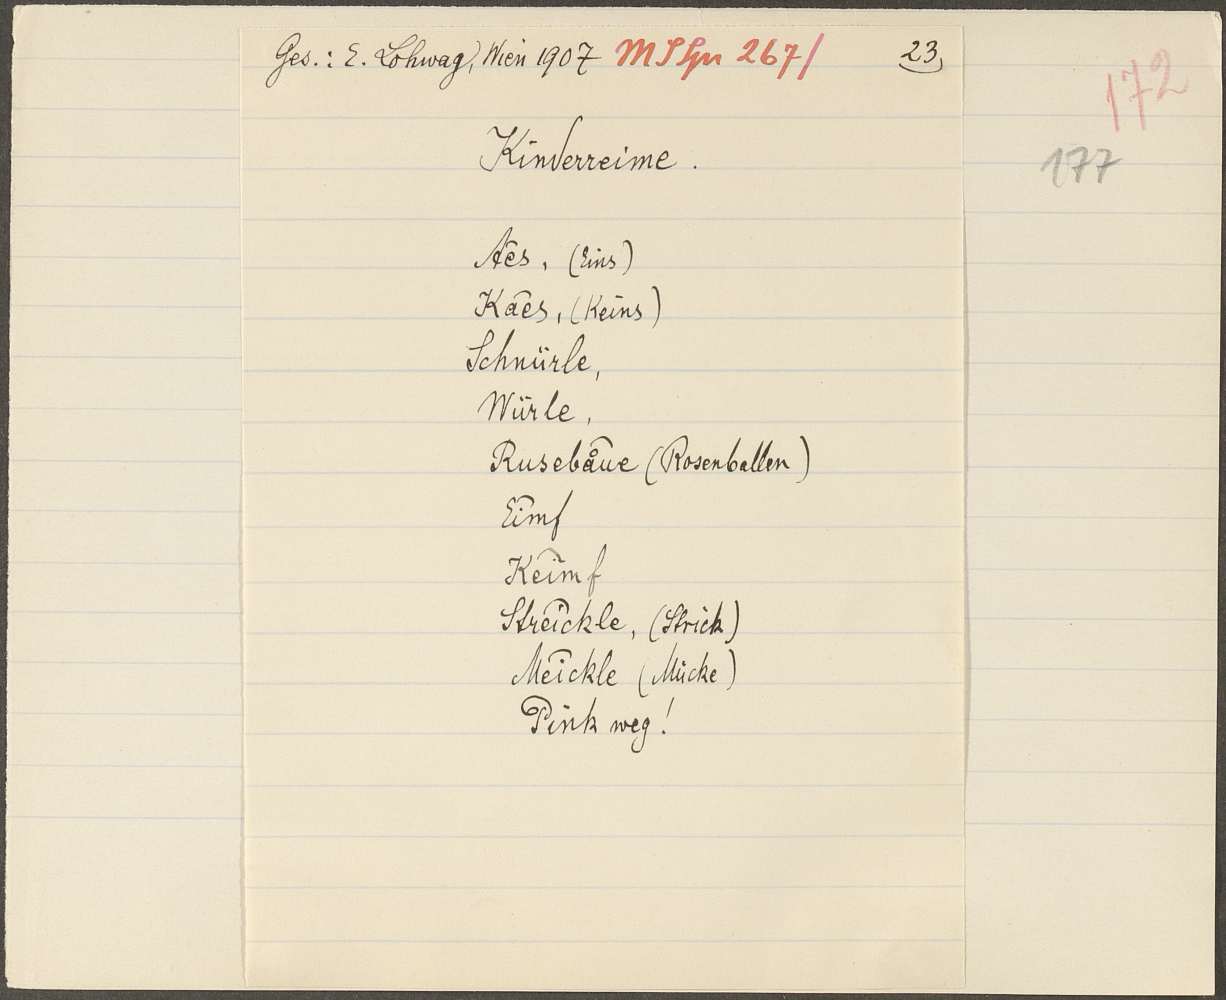 Ges.: E. Lohwag, Wien 1907 267/ 23)
172
177
Kinderreime.
Aes, (Eins)
Kaes, (Keins)
Schnürle,
Würle,
Rusebåue (Rosenballen)
Eimf
Keimf
Streickle, (Strick)
Meickle (Mücke)
Pink weg!